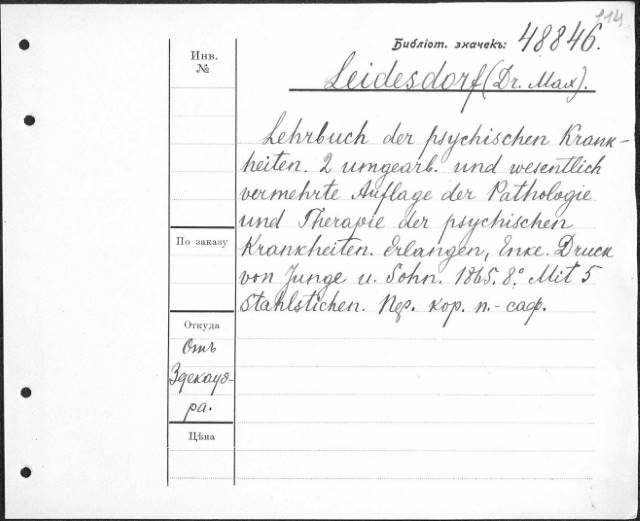 114
Библіот. значекъ: 48846.
Инв.
№
Leidesdorf (Dr. Max).
Lehrbuch der psychischen Krank-
heiten. 2 umgearb. und wesentlich
vermehrte Auflage der Pathologie
und Therapie der psychischen
Krankheiten. Erlangen, Enke. Druck
von Junge u. Sohn. 1865. 8.º Mit 5
Stahlstichen. Пер. кор. п.-саф.
По заказу
Откуда
Отъ
Здекауэ-
ра.
Цѣна